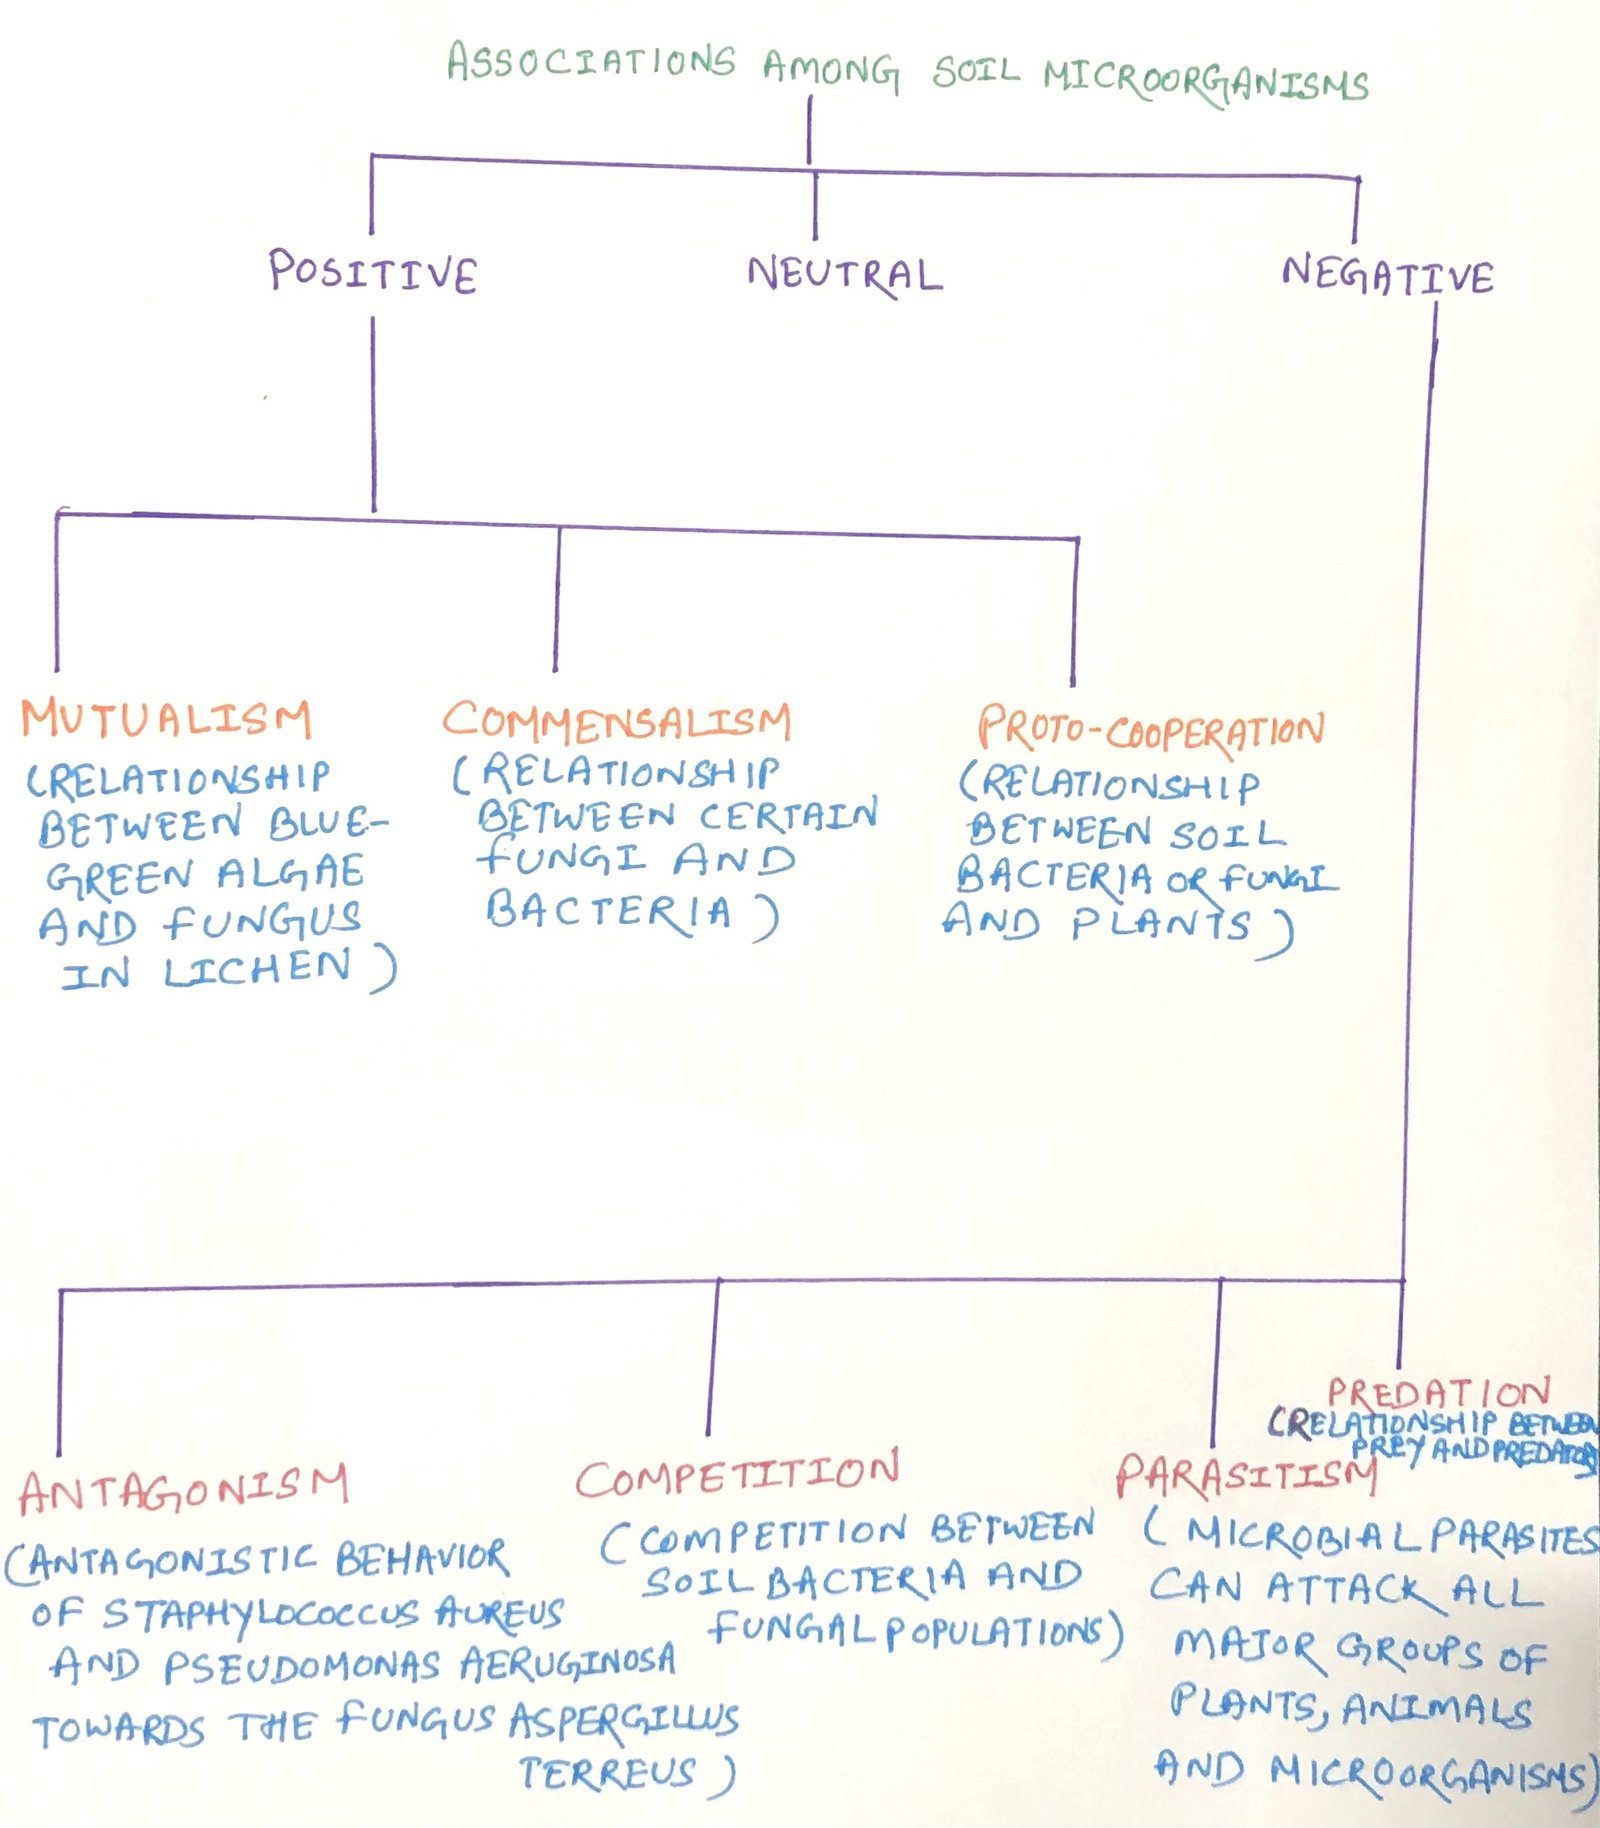 ASSOCIATIONS AMONG SOIL MICROORGANISMS
POSITIVE
NEUTRAL
NEGATIVE
MUTUALISM
(RELATIONSHIP
BETWEEN BLUE-
GREEN ALGAE
AND FUNGUS
IN LICHEN)
COMMENSALISM
(RELATIONSHIP
BETWEEN CERTAIN
FUNGI AND
BACTERIA)
PROTO-COOPERATION
(RELATIONSHIP
BETWEEN SOIL
BACTERIA OR FUNGI
AND PLANTS)
ANTAGONISM
(ANTAGONISTIC BEHAVIOR
OF STAPHYLOCOCCUS AUREUS
AND PSEUDOMONAS AERUGINOSA
TOWARDS THE FUNGUS ASPERGILLUS
TERREUS)
COMPETITION
(COMPETITION BETWEEN
SOIL BACTERIA AND
FUNGAL POPULATIONS)
PARASITISM
(MICROBIAL PARASITES
CAN ATTACK ALL
MAJOR GROUPS OF
PLANTS, ANIMALS
AND MICROORGANISMS)
PREDATION
(RELATIONSHIP BETWEEN
PREY AND PREDATOR)